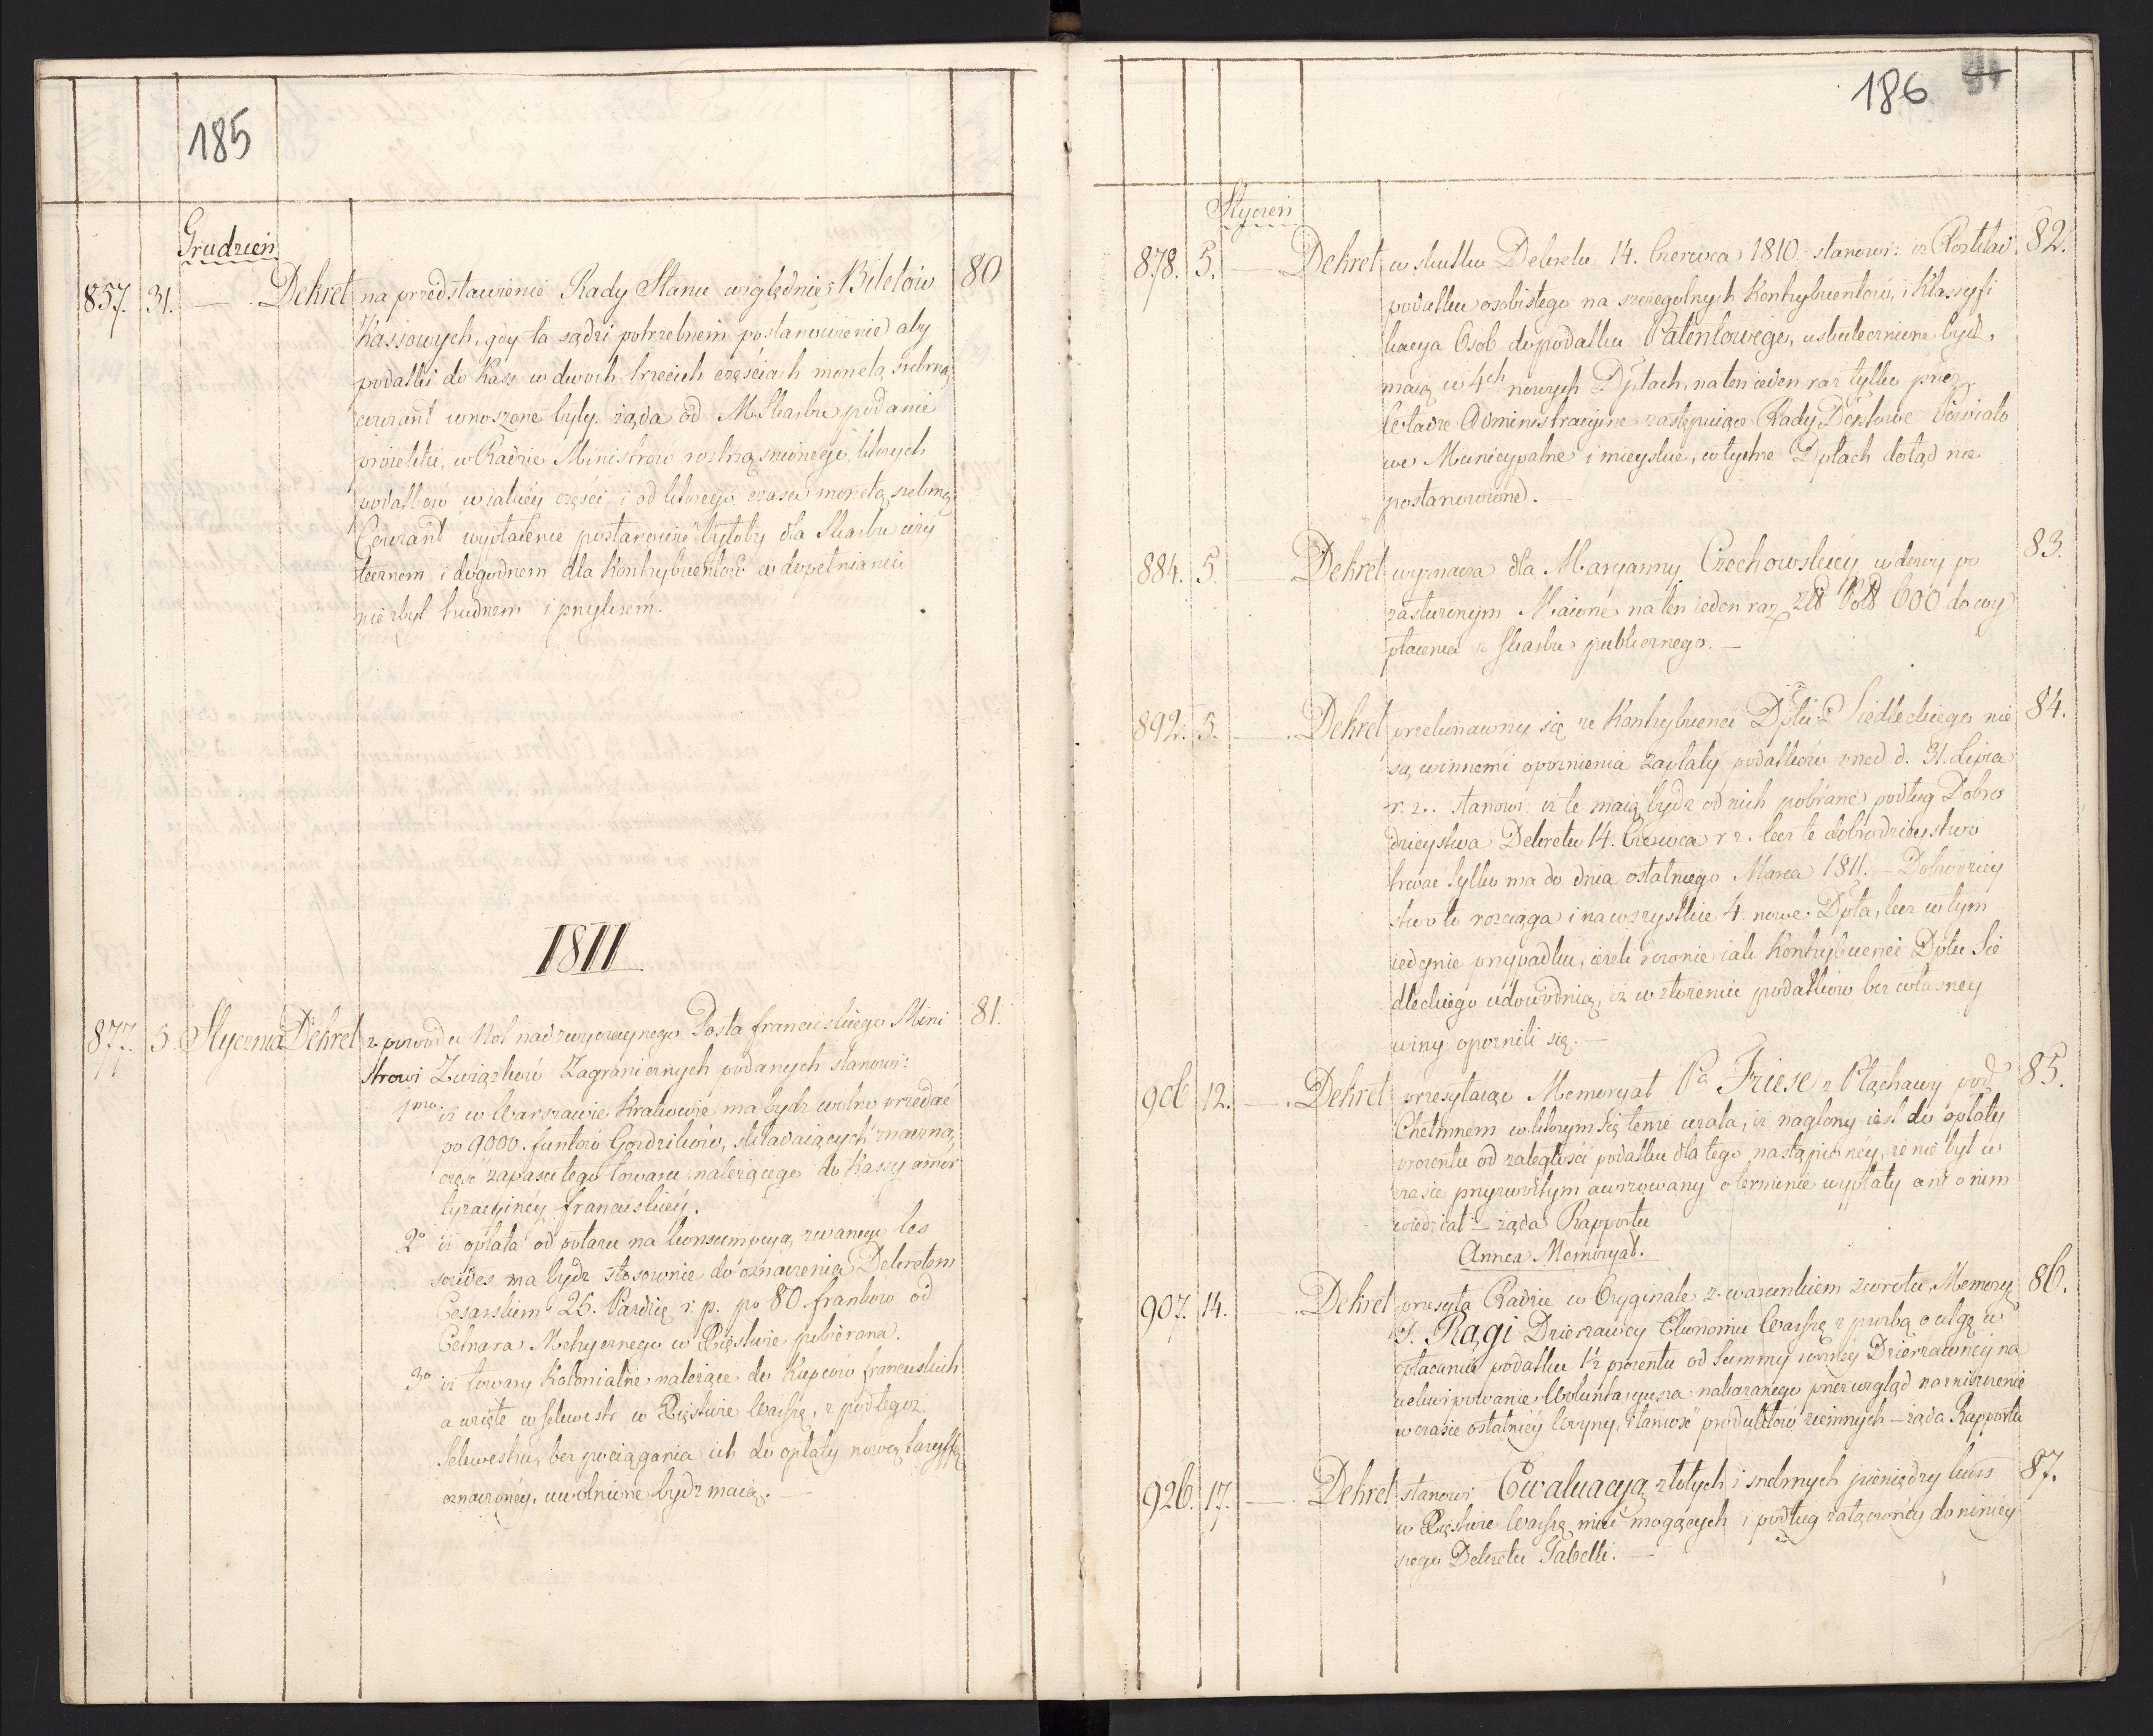 185
Grudzień
857. 31. — Dekret na przedstawienie Rady Stanu względnie Biletów 80
Kassowych, gdy ta sądzi potrzebnem postanowienie aby
podatki do Kass w dwoch trzecich częściach monetą srebrną
courant wnoszone były. żąda od M Skarbu podanie
proiektu, w Radzie Ministrów roztrząsnionego, których
podatków w iakiéy części i od którego czasu monetą srebrną
Courant wypłacenie postanowione byłoby dla Skarbu uży
tecznem, i dogodnem dla Kontrybuentów a w dopełnianiu
nie zbyt trudnem i przykrem.
1811
877. 5. Stycznia Dekret z powodu Not nadzwyczaynego Posła francuskiego Mini 81.
strowi Związków Zagranicznych podanych stanowi:
1mo iż w Warszawie Krakowie ma bydź wolno przedać
po 9000. funtów Gozdzików, składaiących znaczną
część zapasu tego towaru należącego do Kassy amor
tyzacyinéy francuskiéy.
2o iż opłata od potażu na konsumpcyą, zwanego les
soudes ma bydz stosownie do oznaczenia Dekretem
Cesarskiem 26. Pazdzie r. p. po 80. franków od
Cetnara Metrycznego w Xięstwie pobierana.
3o iż towary Kolonialne należące do Kupców francuskich
a wzięte w sekwestr w Xięstwie Warszę, z podtegoż
sekwestru, bez pociągania ich do opłaty nową taryffą
oznaczonéy, uwolnione bydź maią. —
186
Styczeń
878. 5. — Dekret w skutku Dekretu 14. Czerwca 1810. stanowi: iż Rozkład 82.
podatku osobistego na szczegolnych Kontrybuentów, i Klassyfi
kacya Osob do podatku Patentowego, uskutecznione bydź,
maią w 4ch nowych Dptach, na ten ieden raz tylko przez
Władze Administracyine zastępuiące Rady Deptowe Powiato
we Municypalne i mieyskie, w tychże Dptach dotąd nie
postanowione. —
884. 5. — Dekret wyznacza dla Maryanny Czechowskiéy wdowy po 83.
zasłużonym Maiorze na ten ieden raz zł Pol 600 do wy
płacenia z Skarbu publicznego. —
892. 5. — Dekret przekonawszy się ze Kontrybuenci Dptu Siedleckiego nie 84.
są winnemi opoznienia zapłaty podatków przed d. 31. Lipca
r. z.. stanowi iż te maią bydź od nich pobrane podług Dobro
dzieystwa Dekretu 14. Czerwca r z. lecz te dobrodzieystwo
trwać tylko ma do dnia ostatniego Marca 1811. — Dobrodziey
stwo to rozciąga i na wszystkie 4. nowe. Dpta, lecz w tym
iedynie przypadku, ieżeli rownie iak Kontrybuenci Dptu Sie
dleckiego udowodnią, iż w złożeniu podatków bez własney
winy opoznili się. —
906 12. — Dekret przesyłaiąc Memoryał Pa Friese z Płąchawy pod 85.
Chełmnem w którym się tenże użala, iż naglony iest do opłaty
procentu od zaległości podatku dla tego nastąpionéy, że nie był w
czasie przyzwoitym awizowany o terminie wypłaty ani o nim
wiedział — żąda Rapportu
Annex Memoryał.
907. 14. Dekret przesyła Radzie w Oryginale z warunkiem zwrotu, Memory 86.
J. Rągi Dzierzawcy Ekonomii Warszę z prozbą o ulgę w
opłacaniu podatku 1½ procentu od Summy roczney Dzierzawnéy na
uekwipowanie Woluntaryusza nakazanego przez wzgląd na zniszczenie
w czasie ostatniéy Woyny, i taniość produktów ziemnych — żąda Rapportu
926. 17. — Dekret stanowi Ewaluacyą złotych i srebrnych pieniędzy kurs 87.
w Xięstwie Warszę mieć mogących i podług załączonéy do niniey
szego Dekretu Tabelli. —